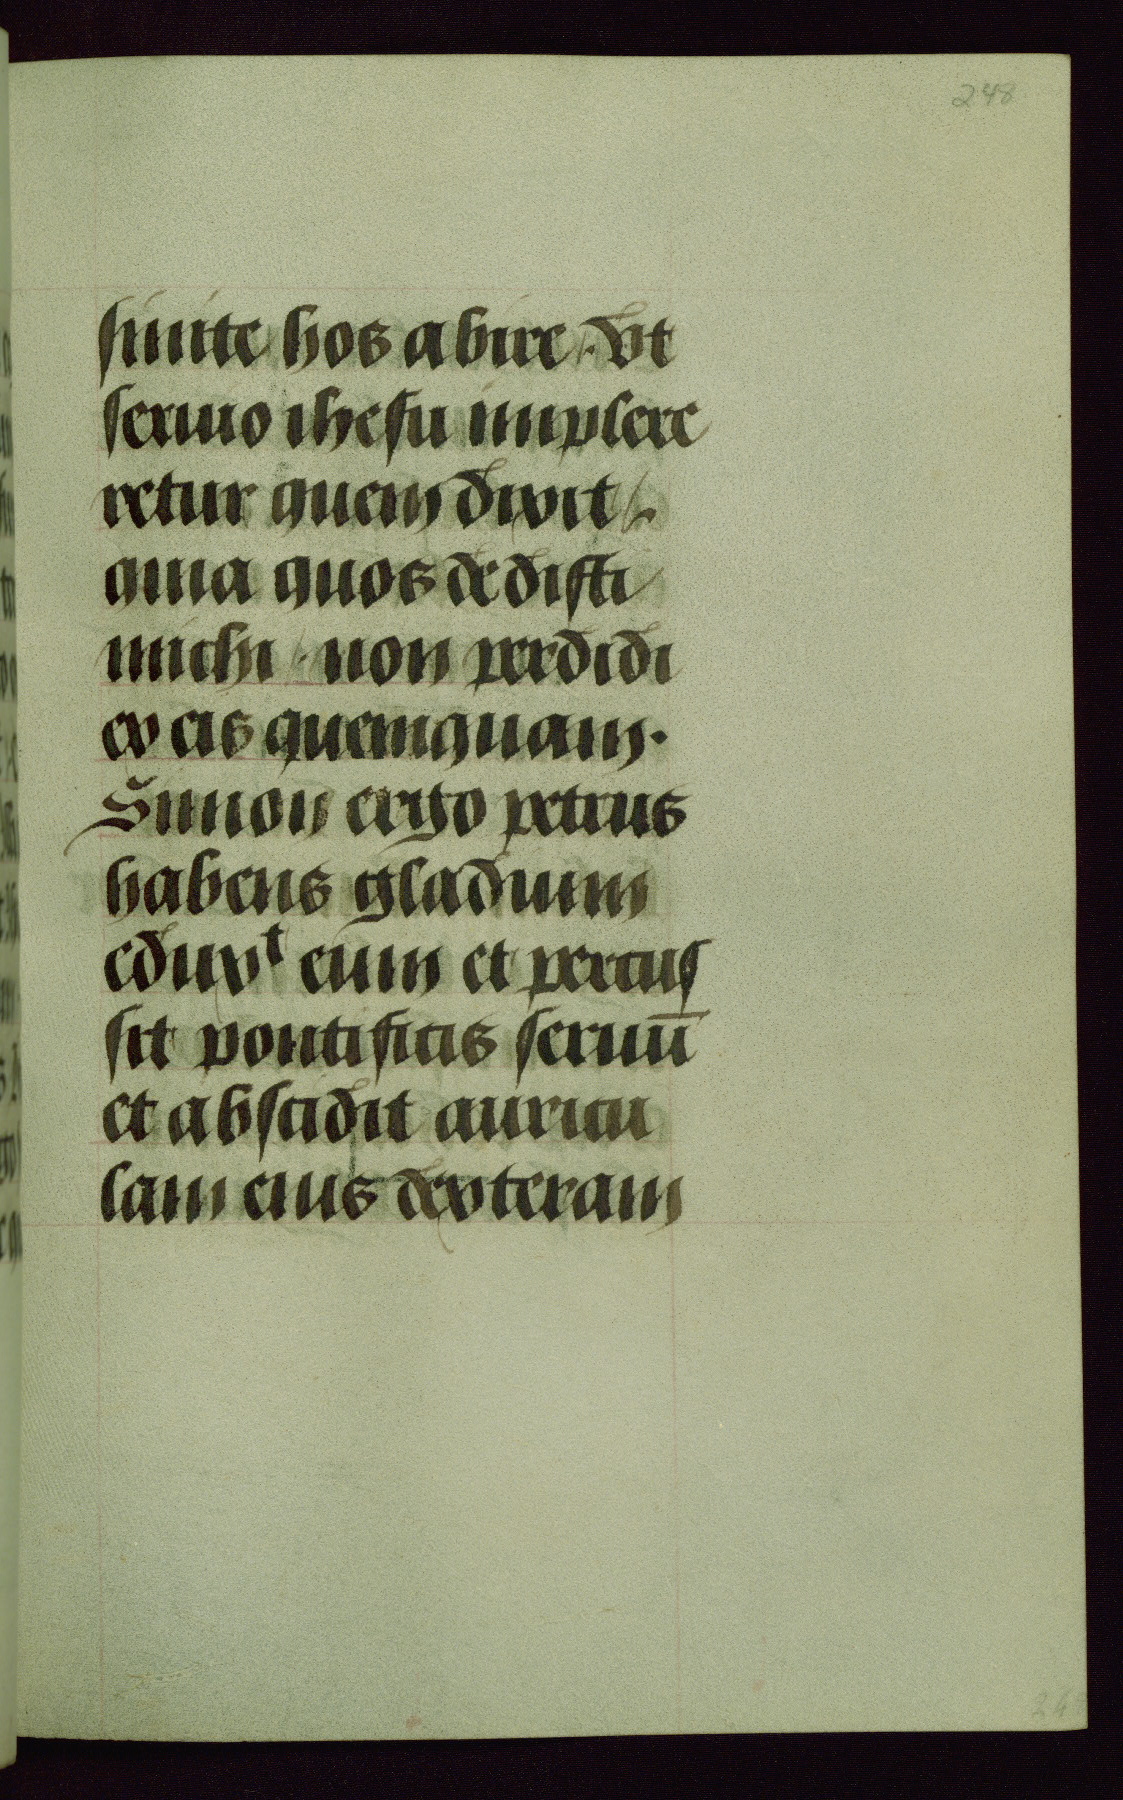 248
sinite hos abire. vt
sermo ihesu implere
retur quem dixit.
quia quos dedisti
michi. non perdidi
ex eis quemquam.
Simon ergo petrus
habens gladium
eduxt eum et percus
sit pontificis seruū
et abscidit auricu
lam eius dexteram